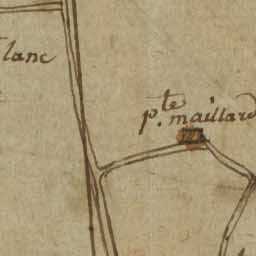 lanc
p.te maillard